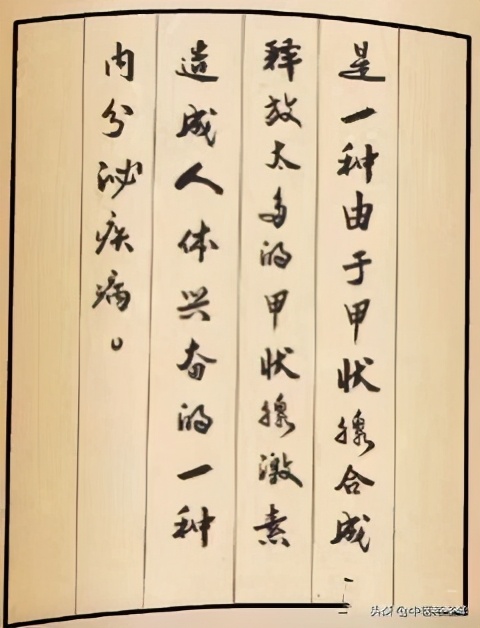 是一种由于甲状腺合成
释放太多的甲状腺激素
造成人体兴奋的一种
内分泌疾病。
头条